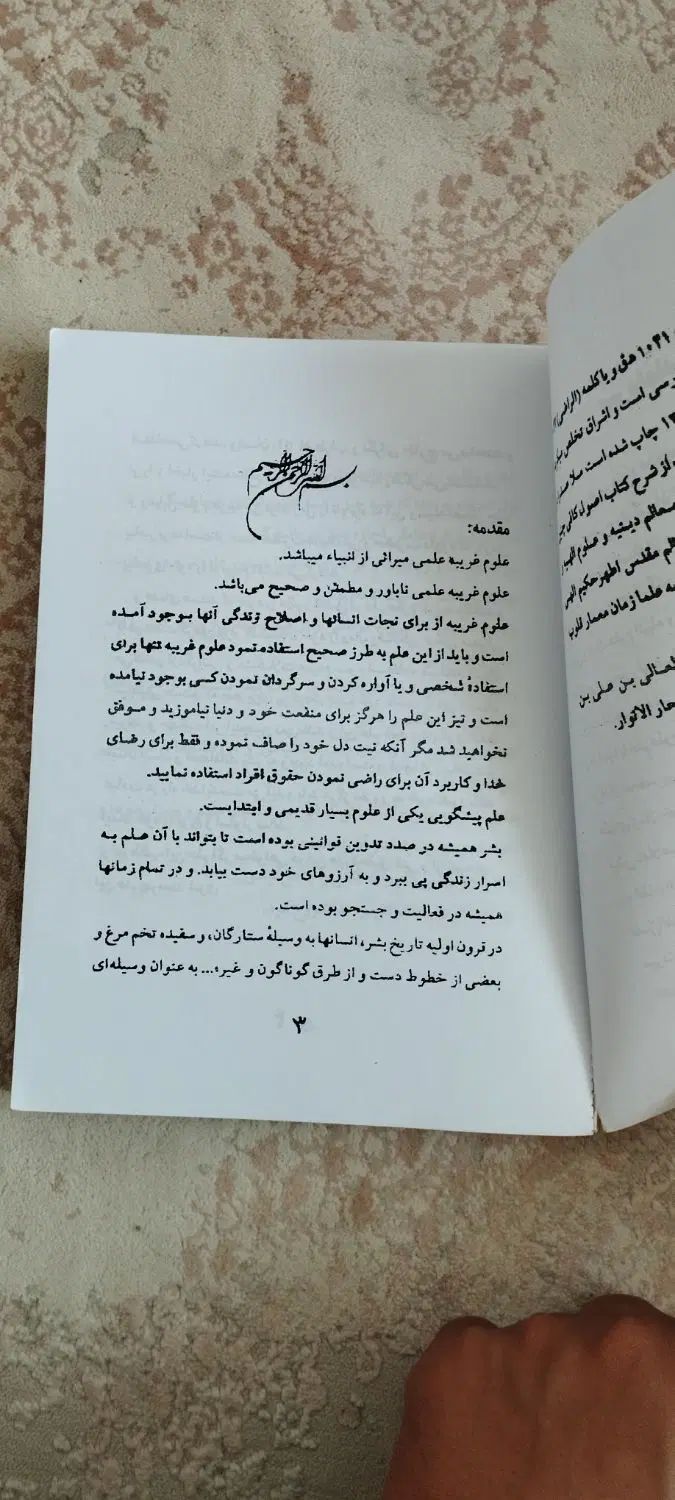 بسم الله الرحمن الرحیم
مقدمه:
علوم غریبه علمی میراثی از انبیاء میباشد.
علوم غریبه علمی ناباور و مطمئن و صحیح می‌باشد.
علوم غریبه از برای نجات انسانها و اصلاح زندگی آنها بوجود آمده
است و باید از این علم به طرز صحیح استفاده نمود علوم غریبه تنها برای
استفادهٔ شخصی و یا آواره کردن و سرگردان نمودن کسی بوجود نیامده
است و نیز این علم را هرگز برای منفعت خود و دنیا نیاموزید و موفق
نخواهید شد مگر آنکه نیت دل خود را صاف نموده و فقط برای رضای
خدا و کاربرد آن برای راضی نمودن حقوق افراد استفاده نمایید.
علم پیشگویی یکی از علوم بسیار قدیمی و ابتدایست.
بشر همیشه در صدد تدوین قوانینی بوده است تا بتواند با آن علم به
اسرار زندگی پی ببرد و به آرزوهای خود دست بیابد. و در تمام زمانها
همیشه در فعالیت و جستجو بوده است.
در قرون اولیه تاریخ بشر، انسانها به وسیلهٔ ستارگان، و سفیده تخم مرغ و
بعضی از خطوط دست و از طرق گوناگون و غیره... به عنوان وسیله‌ای
۳
۱۰۴۱ هق و یا کلمه (الراضی)
رسی است و اشراق تخلص
چاپ شده است ملا صدرا
از شرح کتاب اصول کافی
معالم دینیه و علوم الهیه
هم مقدس اطهر حکیم الهی
علما زمان معمار
العالی بن علی بن
حار الانوار.